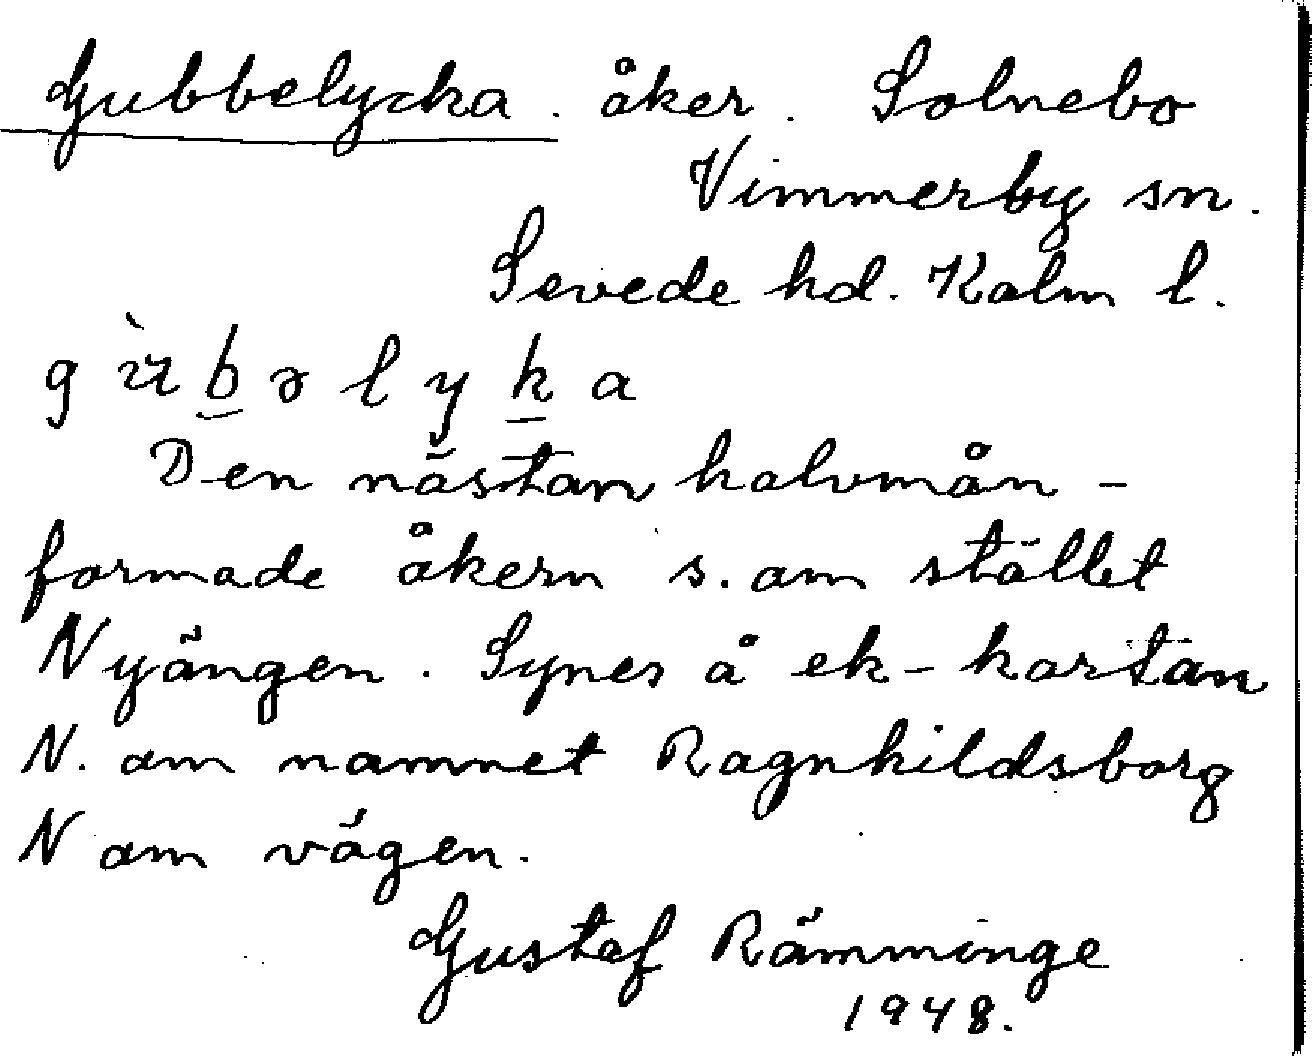 Gubbelycka. åker. Solnebo
Vimmerby sn.
Sevede hd. Kalm l.
g ù b ə l y k a
Den nästan halvmån-
formade åkern s. om stället
Nyängen. Synes å ek-kartan
N. om namnet Ragnhildsborg
N om vägen.
Gustaf Rämminge
1948.